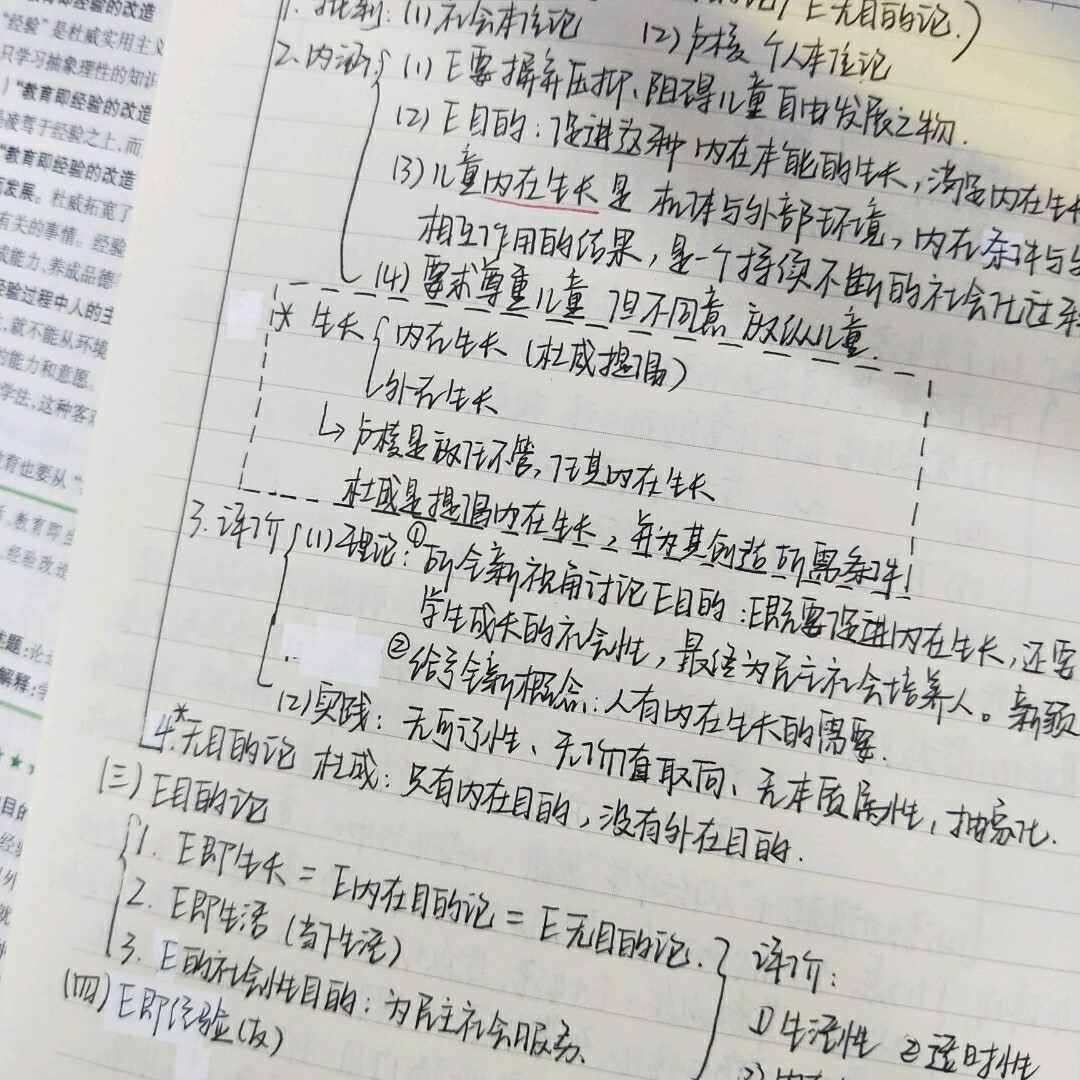 育即经验的改造
"经验"是杜威实用主义
只学习抽象理性的知识
)"教育即经验的改造
凌驾于经验之上,而
"教育即经验的改造
发展。杜威拓宽了
有关的事情。经验
成能力、养成品德
经验过程中人的主
就不能从环境
的能力和意愿。
学法,这种客观
教育也要从"
教育即生
经验改造
主题:论
解释:
1. 批判:(1) 社会本位论 (2) 卢梭 个人本位论
论/E无目的论.)
2. 内涵 (1) E要摒弃压抑、阻碍儿童自由发展之物.
(2) E目的:促进这种内在本能的生长,满足内在生长
(3) 儿童内在生长是 机体与外部环境,内在条件与
相互作用的结果,是一个持续不断的社会化过程
(4) 要求尊重儿童 但不同意 放纵儿童.
* 生长 内在生长 (杜威提倡)
外在生长
↳ 卢梭是放任不管,任其内在生长
杜威是提倡内在生长,并为其创造所需条件!
3. 评价 (1) 理论:① 所全新视角讨论E目的:E既要促进内在生长,还要
学生成长的社会性,最终为民主社会培养人。新颖
② 给予全新概念:人有内在生长的需要.
(2) 实践:无可行性、无价值取向、无本质属性,抽象化.
4.*无目的论 杜威:只有内在目的,没有外在目的.
(三) E目的论
1. E即生长 = E内在目的论 = E无目的论.
2. E即生活 (当下生活)
3. E的社会性目的:为民主社会服务.
评价:
① 生活性 ② 适时性
(四) E即经验(改)